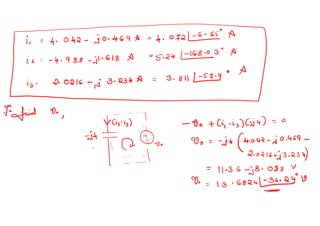 i₁ = 4.042 - j0.469 A = 4.072 ∠-6.65° A
i₂ = -4.988 - j1.618 A = 5.24 ∠-168.03° A
i₃ = 2.0216 - j3.234 A = 3.811 ∠-57.9° A
To find v₀,
↓(i₁-i₃)
-j4
v₀
-v₀ + (i₁-i₃)(-j4) = 0
v₀ = -j4 (4.042 - j0.469 -
2.0216 + j3.234)
= 11.36 - j8.088 V
v₀ = 13.6824 ∠-36.24° V